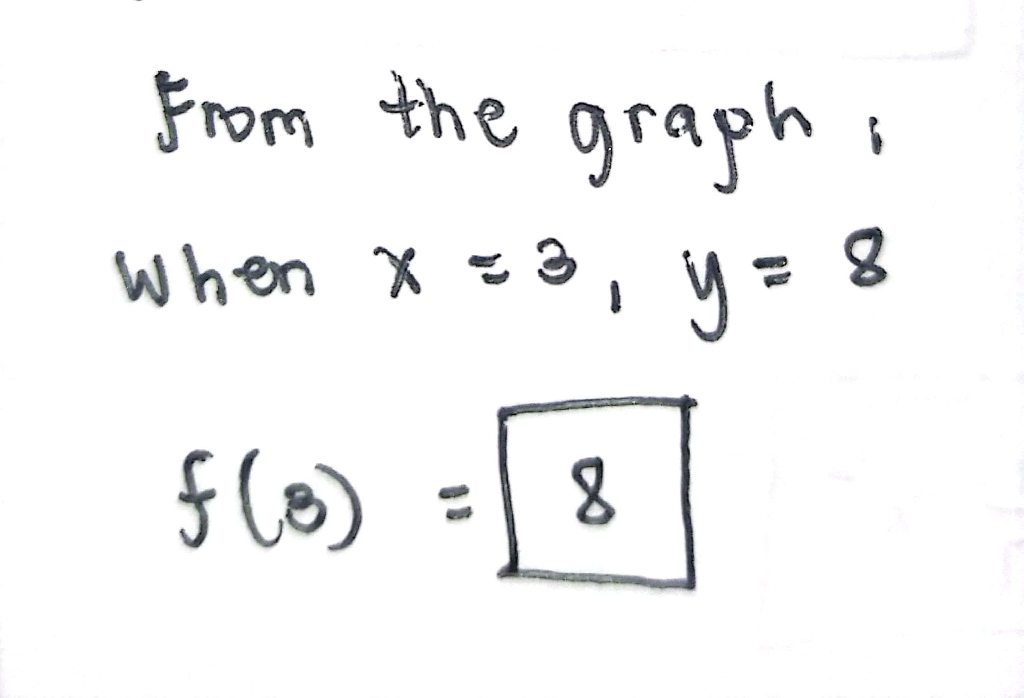 From the graph,
When x = 3, y = 8
f(3) = 8